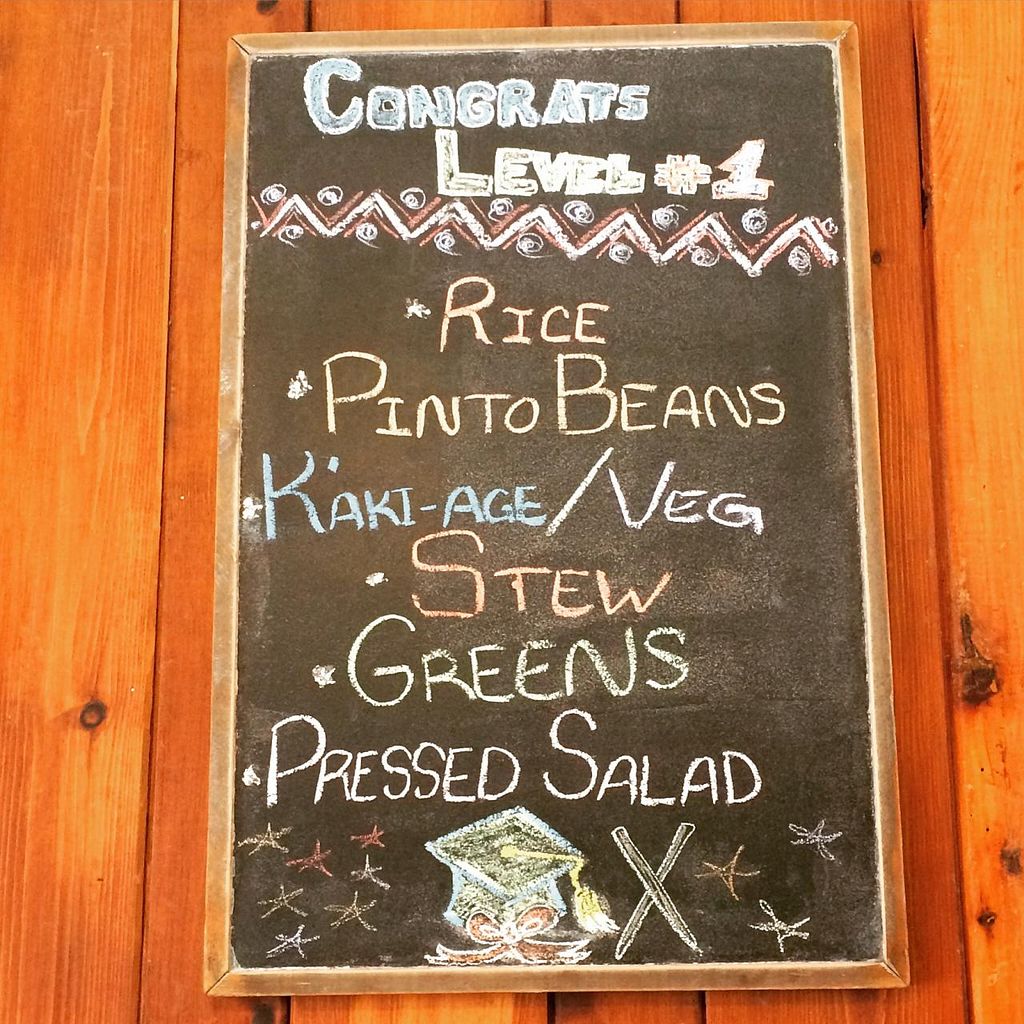 CONGRATS
LEVEL #1
RICE
PINTO BEANS
K'AKI-AGE/VEG
STEW
GREENS
PRESSED SALAD